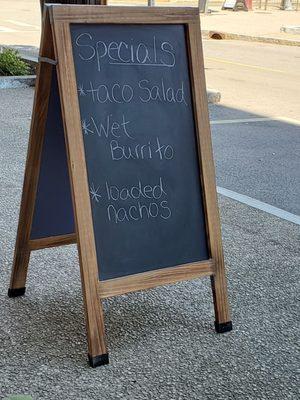 Specials
*taco Salad
*Wet
Burrito
*loaded
nachos